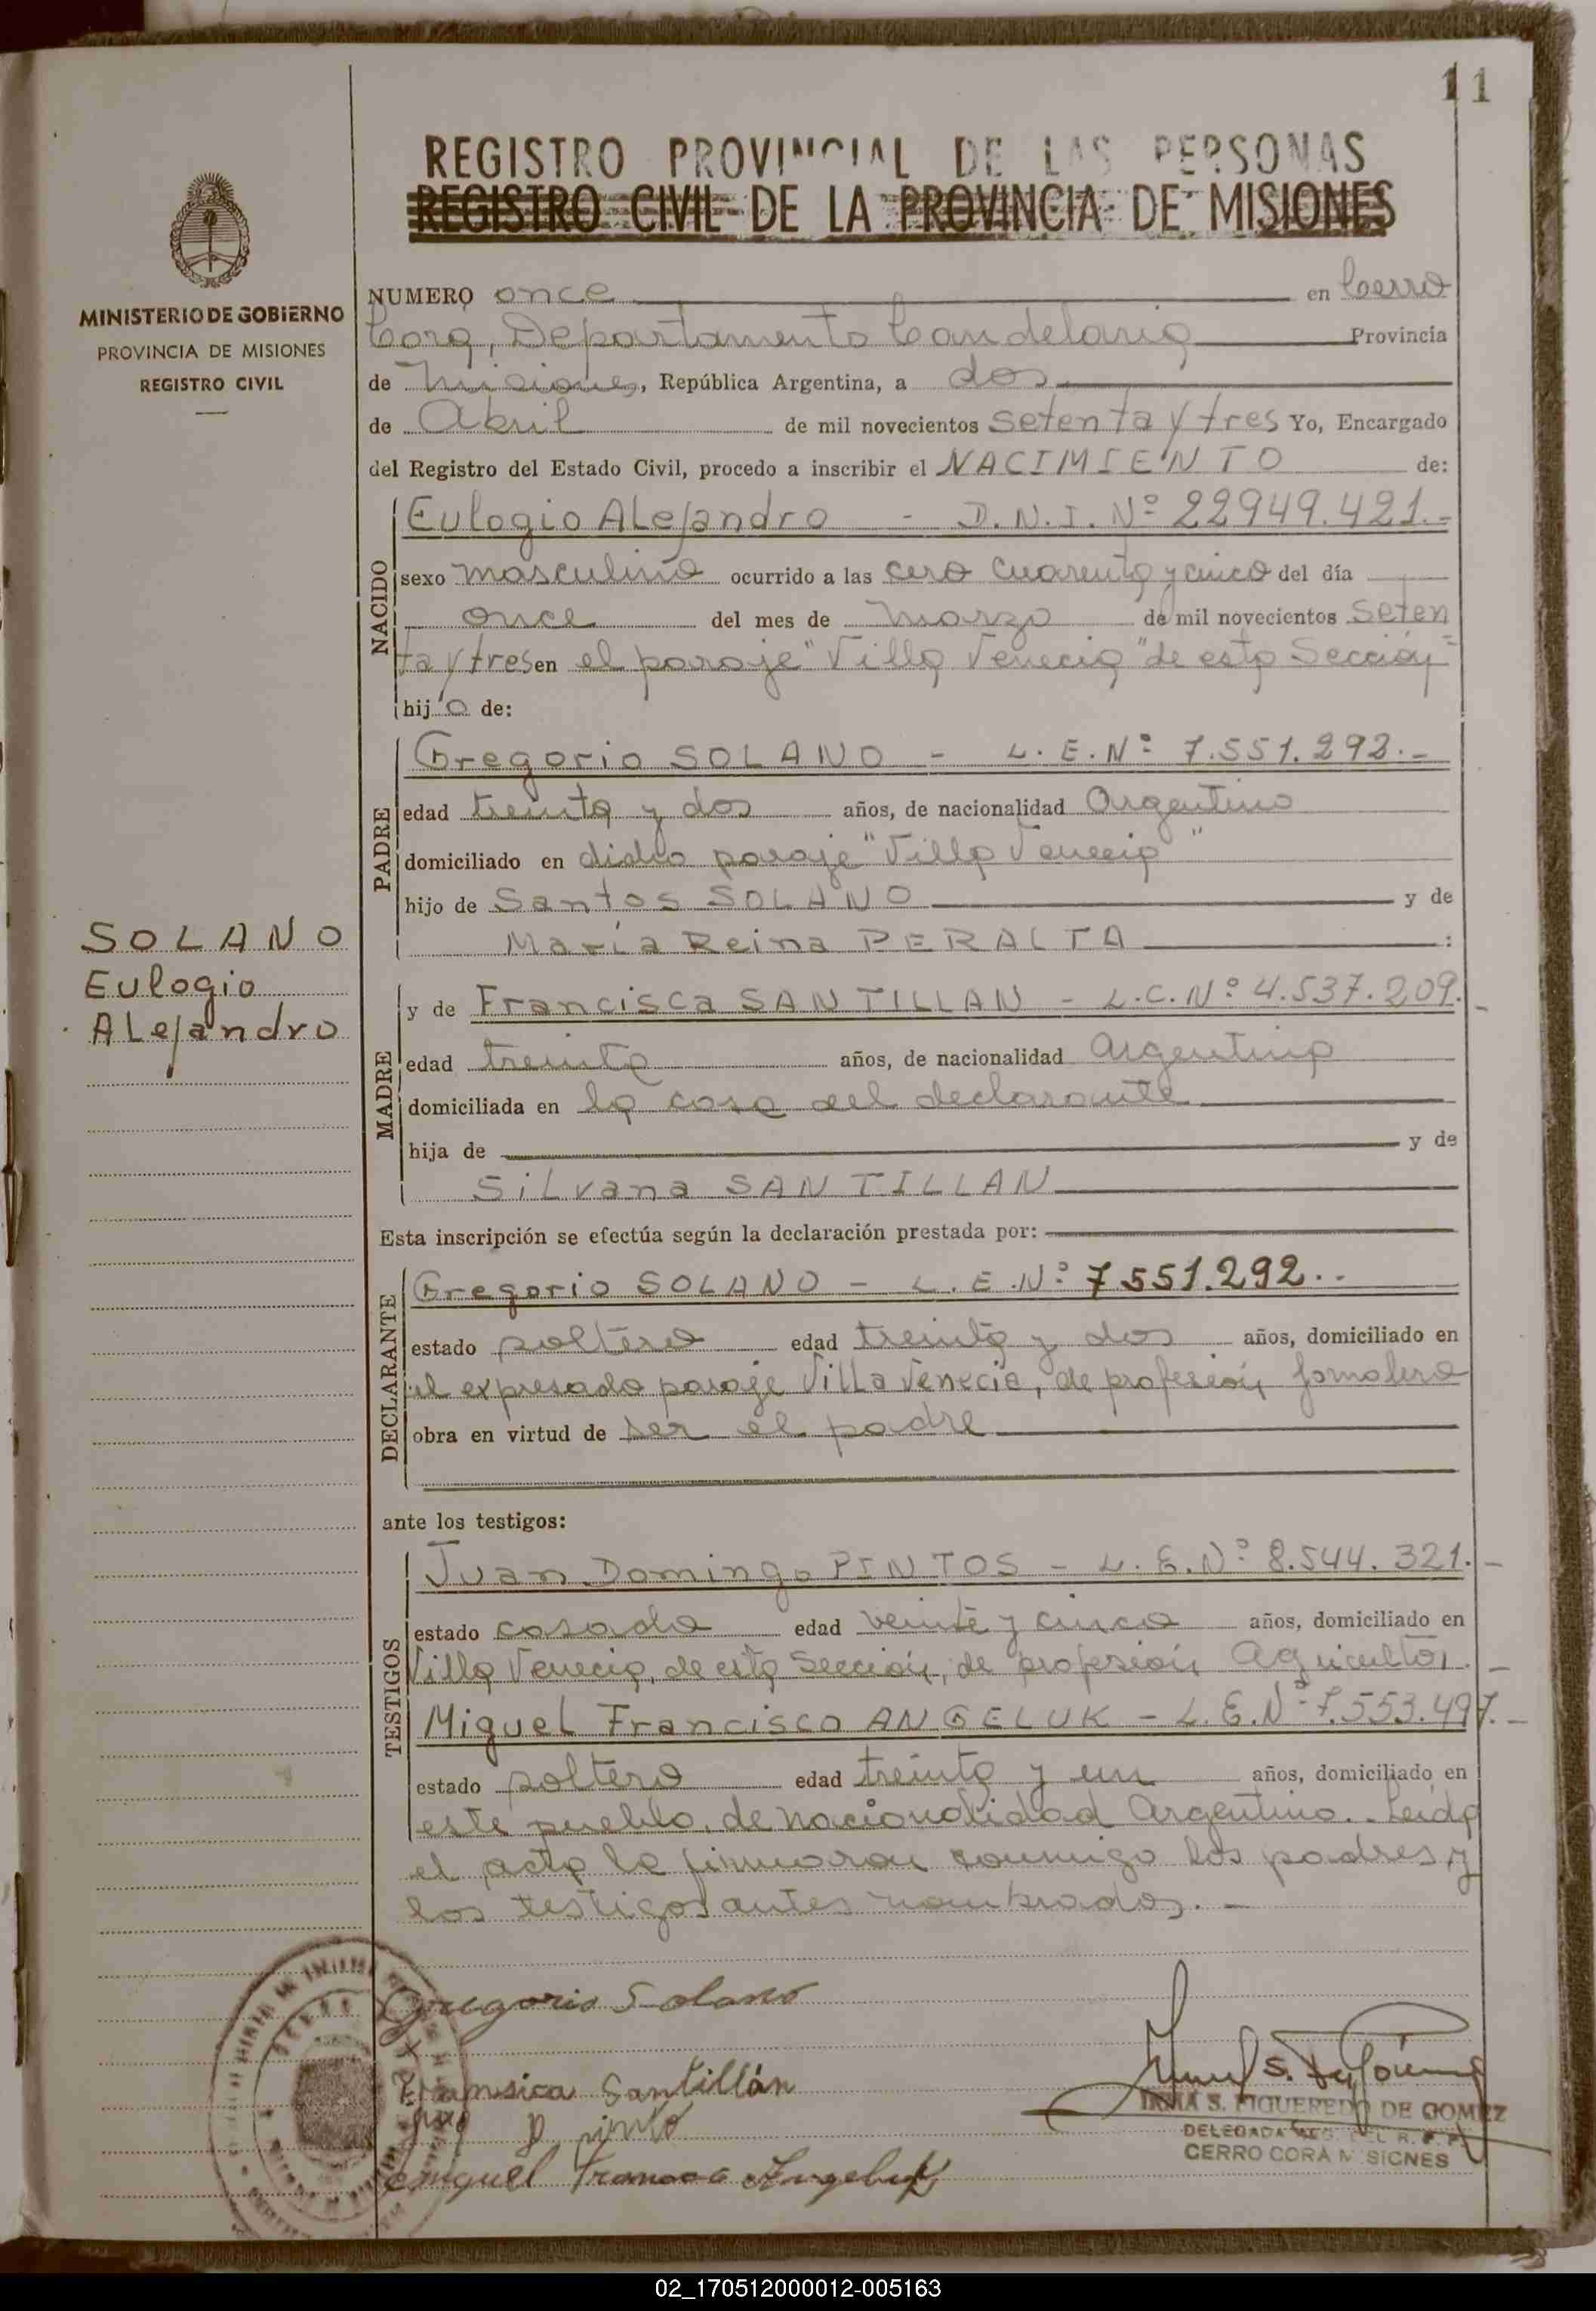 11
REGISTRO PROVINCIAL DE LAS PERSONAS
REGISTRO CIVIL DE LA PROVINCIA DE MISIONES
MINISTERIO DE GOBIERNO
PROVINCIA DE MISIONES
REGISTRO CIVIL
NUMERO once en Cerro
Corá, Departamento Candelaria Provincia
de Misiones, República Argentina, a dos
de Abril de mil novecientos setenta y tres Yo, Encargado
del Registro del Estado Civil, procedo a inscribir el NACIMIENTO de:
NACIDO
Eulogio Alejandro - D.N.I. Nº 22949.421.-
sexo masculino ocurrido a las cero cuarenta y cinco del día
once del mes de marzo de mil novecientos seten
ta y tres en el paraje "Villa Venecia" de esta Sección
hijo de:
PADRE
Gregorio SOLANO - L.E.Nº 7.551.292.-
edad treinta y dos años, de nacionalidad Argentino
domiciliado en dicho paraje "Villa Venecia"
hijo de Santos SOLANO y de
María Reina PERALTA :
SOLANO
Eulogio
Alejandro
MADRE
y de Francisca SANTILLAN - L.C.Nº 4.537.209.-
edad treinta años, de nacionalidad Argentina
domiciliada en la casa del declarante
hija de y de
Silvana SANTILLAN
Esta inscripción se efectúa según la declaración prestada por:
DECLARANTE
Gregorio SOLANO - L.E.Nº 7551.292.-
estado soltero edad treinta y dos años, domiciliado en
el expresado paraje Villa Venecia, de profesión jornalero
obra en virtud de ser el padre
ante los testigos:
TESTIGOS
Juan Domingo PINTOS - L.E.Nº 8.544.321.-
estado casado edad veinte y cinco años, domiciliado en
Villa Venecia, de esta Sección, de profesión Agricultor.-
Miguel Francisco ANGELUK - L.E.Nº 7.553.497.-
estado soltero edad treinta y un años, domiciliado en
este pueblo, de nacionalidad Argentino.- Leida
el acta la firmaron conmigo los padres y
los testigos antes nombrados.-
Gregorio Solano
Fransica Santillán
Pinto
Miguel Angeluk
IRMA S. FIGUEREDO DE GOMEZ
DELEGADA
CERRO CORA MISIONES
02_170512000012-005163